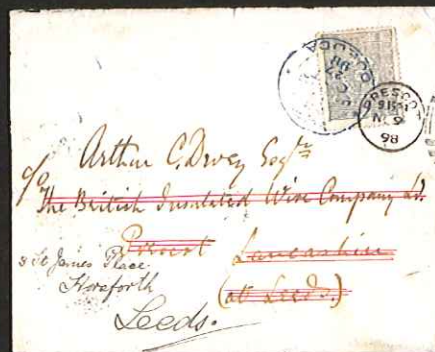 PRESCOT
98
Arthur C. Dewey Esqre
c/o
The British Insulated Wire Company Ld.
Prescot Lancashire
(at Leeds.)
3 St James Place
Horsforth
Leeds.